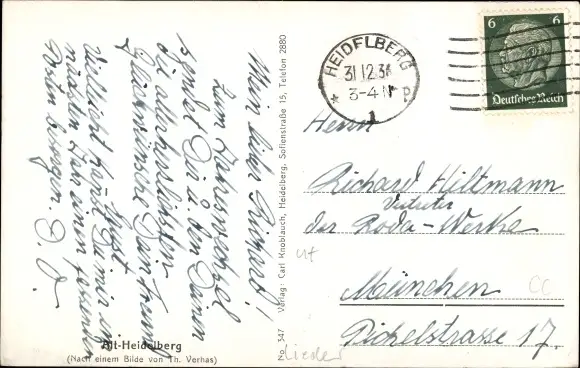 Mein lieber Richard!
Zum Jahreswechsel
sendet Dir u. den Deinen
die allerherzlichsten
Glückwünsche Dein Freund
Vielleicht kannst Du mir im
nächsten Jahr einen
Posten besorgen. D. O.
Alt-Heidelberg
(Nach einem Bilde von Th. Verhas)
No. 347 Verlag: Carl Knoblauch, Heidelberg, Sofienstraße 15, Telefon 2880
HEIDELBERG
31.12.34
3-4 N
1
6 6
Deutsches Reich
Herrn
Richard Hiltmann
Vertreter
der Roda-Werke
München
Pichelstrasse 17.
lieder